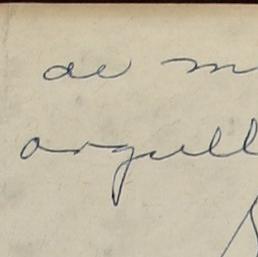 de m
orgull